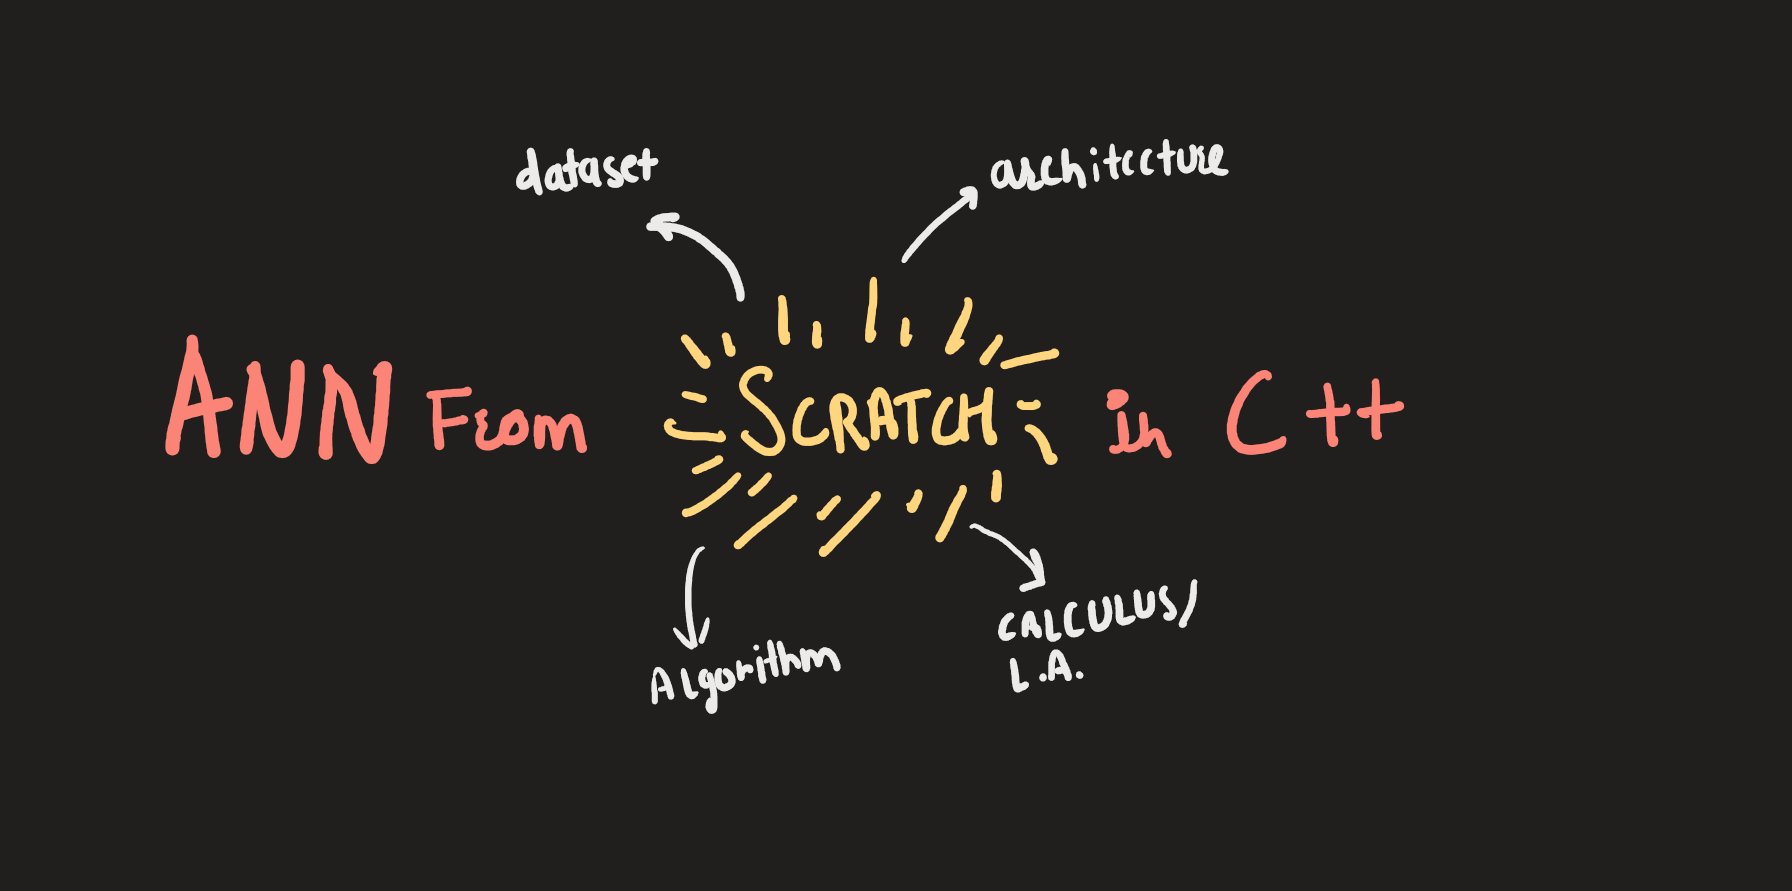 dataset
architecture
ANN From SCRATCH in C++
Algorithm
CALCULUS/
L.A.